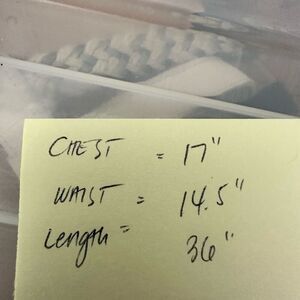 CHEST = 17"
WAIST = 14.5"
Length = 36"